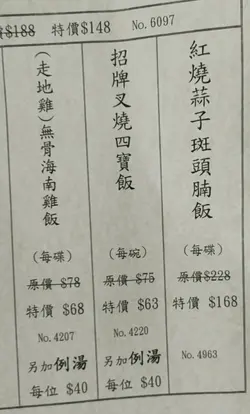 $188 特價 $148 No. 6097
紅燒蒜子斑頭腩飯
(每碟)
原價 $228
特價 $168
No. 4963
招牌叉燒四寶飯
(每碗)
原價 $75
特價 $63
No. 4220
另加例湯
每位 $40
(走地雞)無骨海南雞飯
(每碟)
原價 $78
特價 $68
No. 4207
另加例湯
每位 $40